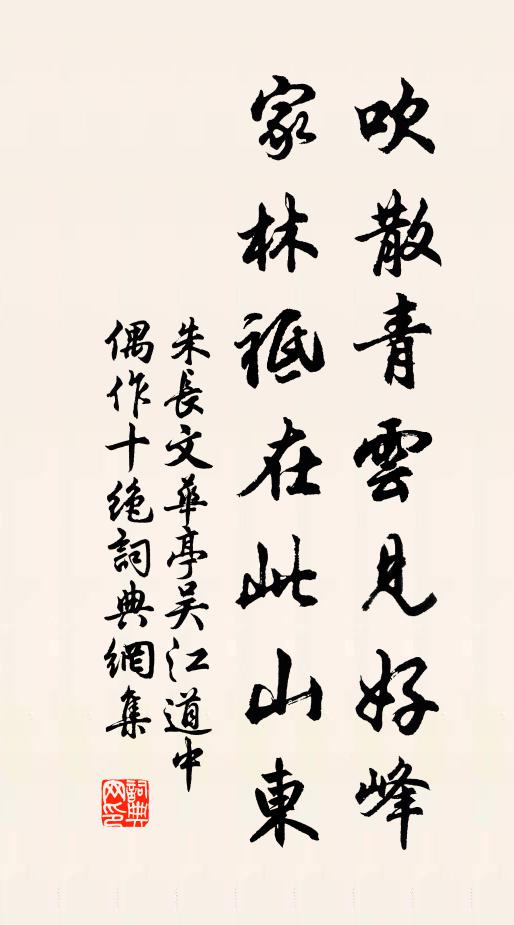 吹散青雲見好峰
家林祗在此山東
朱長文華亭吳江道中
偶作十絶詞典網集
詞典网印